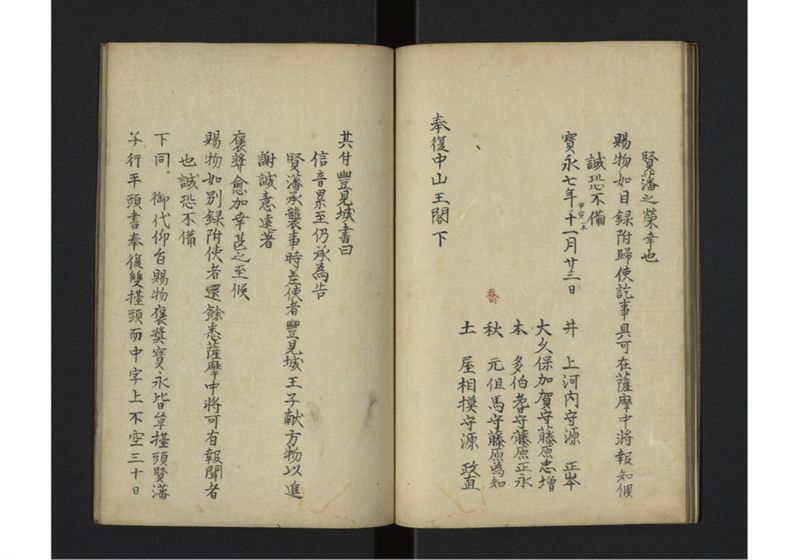 賢藩之榮幸也
賜物如目録附歸使訖事具可在薩摩中將報知候
誠恐不備
寶永七年十一月廿三日
井上河内守源正岑
大久保加賀守藤原忠增
本多伯耆守藤原正永
喬
秋元但馬守藤原為知
土屋相模守源政直
奉復中山王閣下
其付豐見城書曰
信音累至仍承為告
賢藩承襲事時差使者豐見城王子献方物以進
謝誠意遠著
褒奨愈加幸甚之至候
賜物如別録附使者還餘悉薩摩中將可有報聞者
也誠恐不備
下同御代仰自賜物褒奨寶永皆单擡頭賢藩
字行平頭書奉復雙擡頭而中字上不空三十日